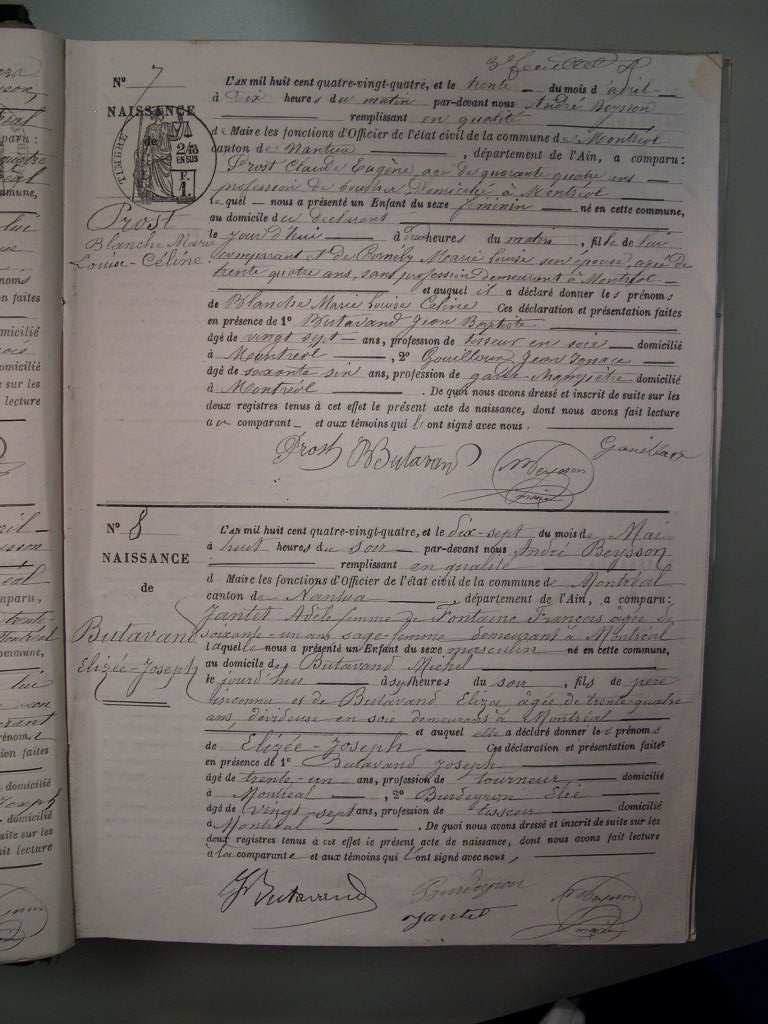 3e feuillet
N° 7
NAISSANCE
de
TIMBRE
2/10
EN SUS
F.
1
Prost
Blanche Marie
Louise-Céline
L'AN mil huit cent quatre-vingt-quatre, et le trente du mois d'avril
à dix heures du matin par-devant nous André Beysson
remplissant en qualité
de Maire les fonctions d'Officier de l'état civil de la commune de Montréal
canton de Nantua, département de l'Ain, a comparu:
Prost Claude Eugène, agé de quarante quatre ans
profession de domicilié à Montréal
lequel nous a présenté un Enfant du sexe féminin né en cette commune,
au domicile du déclarant
le jour d'hui à heures du matin, fille de lui
comparant et de Marie Louise son épouse, agée de
trente quatre ans, sans profession demeurant à Montréal
et auquel il a déclaré donner les prénoms
de Blanche Marie Louise Céline Ces déclaration et présentation faites
en présence de 1° Butavand Jean Baptiste
âgé de vingt sept ans, profession de tisseur en soie domicilié
à Montréal, 2° Jean
âgé de soixante six ans, profession de garde-champêtre domicilié
à Montréal. De quoi nous avons dressé et inscrit de suite sur les
deux registres tenus à cet effet le présent acte de naissance, dont nous avons fait lecture
au comparant et aux témoins qui l'ont signé avec nous.
Prost Butavand
N° 8
NAISSANCE
de
Butavand
Elizée-Joseph
L'AN mil huit cent quatre-vingt-quatre, et le dix-sept du mois de Mai
à huit heures du soir par-devant nous André Beysson
remplissant en qualité
d Maire les fonctions d'Officier de l'état civil de la commune de Montréal
canton de Nantua, département de l'Ain, a comparu:
Jantet Adèle femme de Fontaine François âgée de
soixante-un ans sage-femme demeurant à Montréal
laquelle nous a présenté un Enfant du sexe masculin né en cette commune,
au domicile de Butavand Michel
le jourd'hui à sept heures du soir, fils de père
inconnu et de Butavand Eliza, âgée de trente-quatre
ans, dévideuse en soie demeurant à Montréal
et auquel elle a déclaré donner les prénoms
de Elizée-Joseph Ces déclaration et présentation faites
en présence de 1° Butavand Joseph
âgé de trente-un ans, profession de tourneur domicilié
à Montréal, 2° Burdeyron Elie
âgé de vingt sept ans, profession de tisseur domicilié
à Montréal. De quoi nous avons dressé et inscrit de suite sur les
deux registres tenus à cet effet le présent acte de naissance, dont nous avons fait lecture
à la comparante et aux témoins qui l'ont signé avec nous,
J Butavand Burdeyron
Jantet